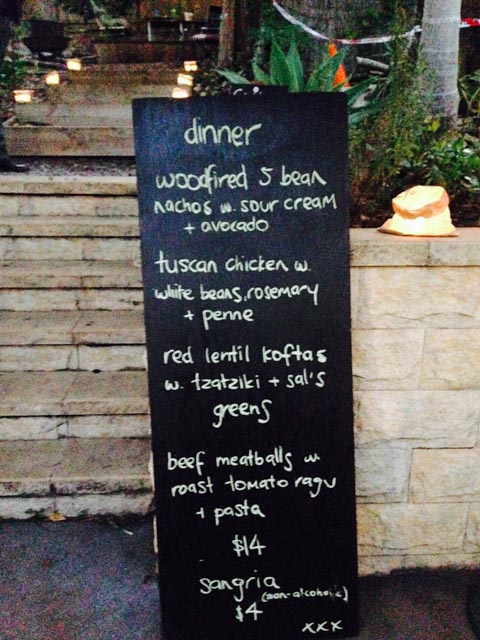 dinner
woodfired 5 bean
nachos w. sour cream
+ avocado
tuscan chicken w.
white beans, rosemary
+ penne
red lentil koftas
w. tzatziki + sal's
greens
beef meatballs w.
roast tomato ragu
+ pasta
$14
sangria
(non-alcoholic)
$4
xxx